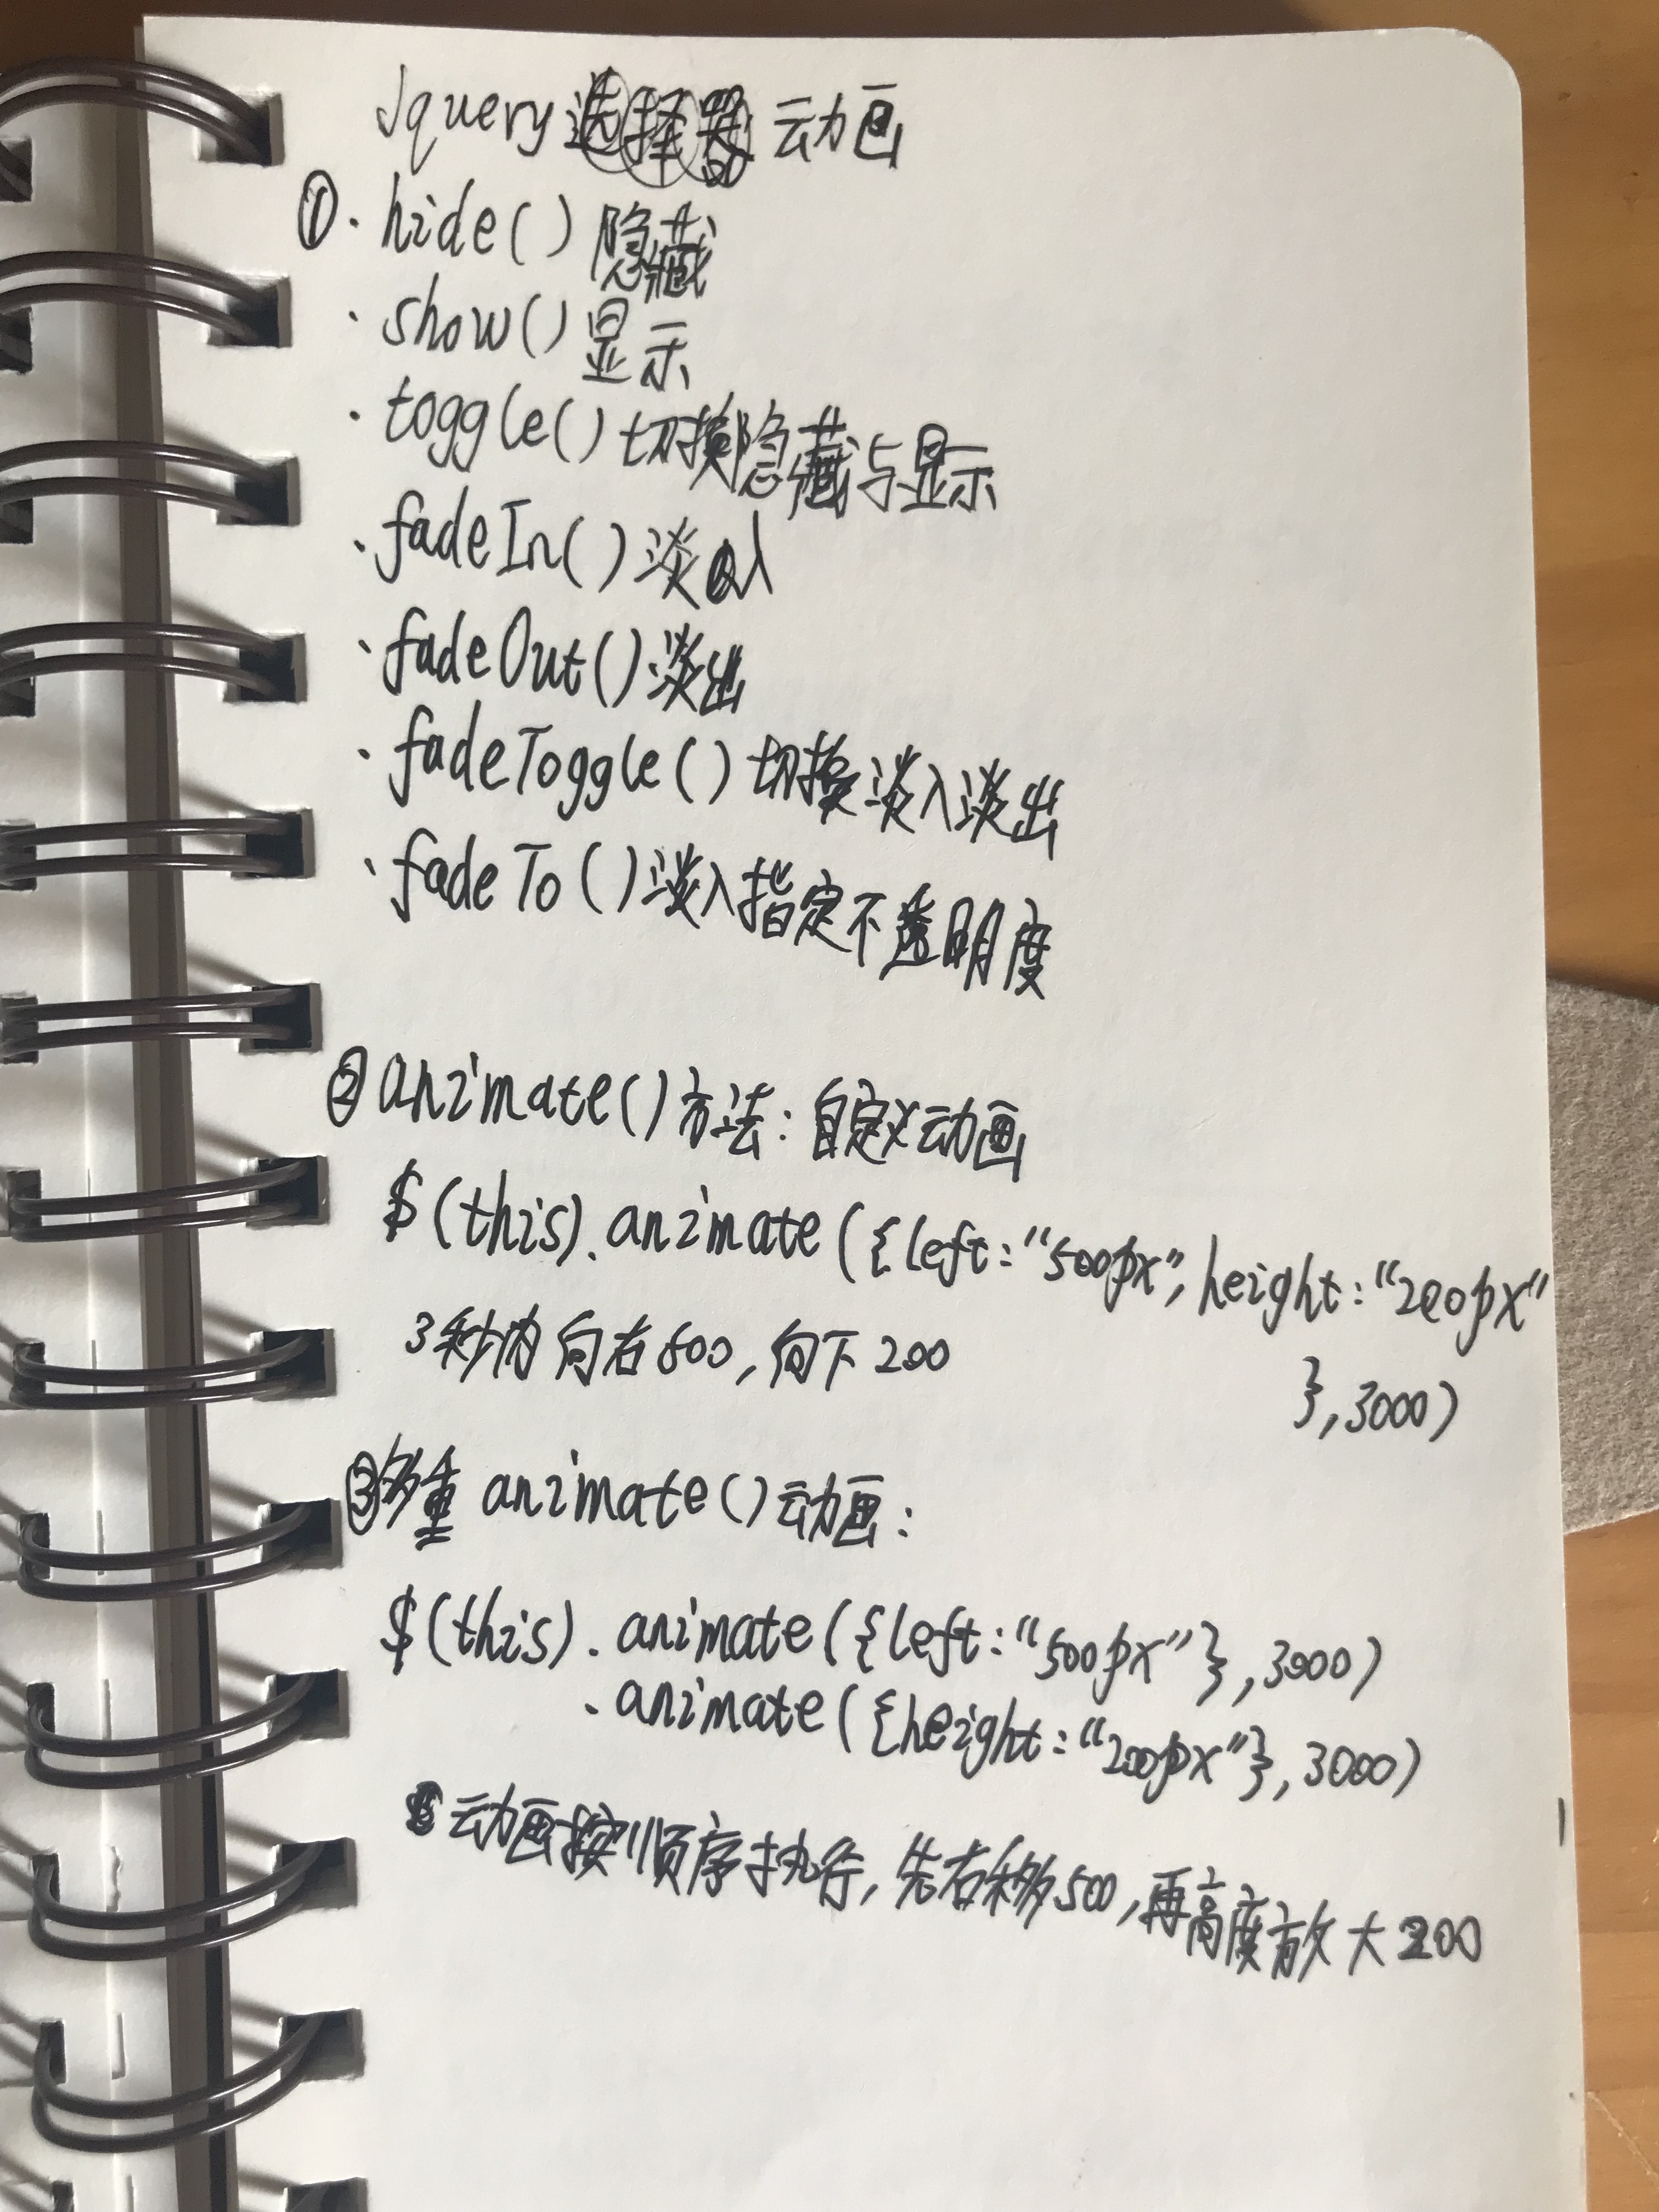 Jquery 动画
① · hide() 隐藏
· show() 显示
· toggle() 切换隐藏与显示
· fadeIn() 淡入
· fadeOut() 淡出
· fadeToggle() 切换淡入淡出
· fadeTo() 淡入指定不透明度
② animate() 方法：自定义动画
$(this).animate({left:"500px",height:"200px"
},3000)
3秒内向右500,向下200
③多重 animate() 动画：
$(this).animate({left:"500px"},3000)
.animate({height:"200px"},3000)
动画按顺序执行,先右移500,再高度放大200